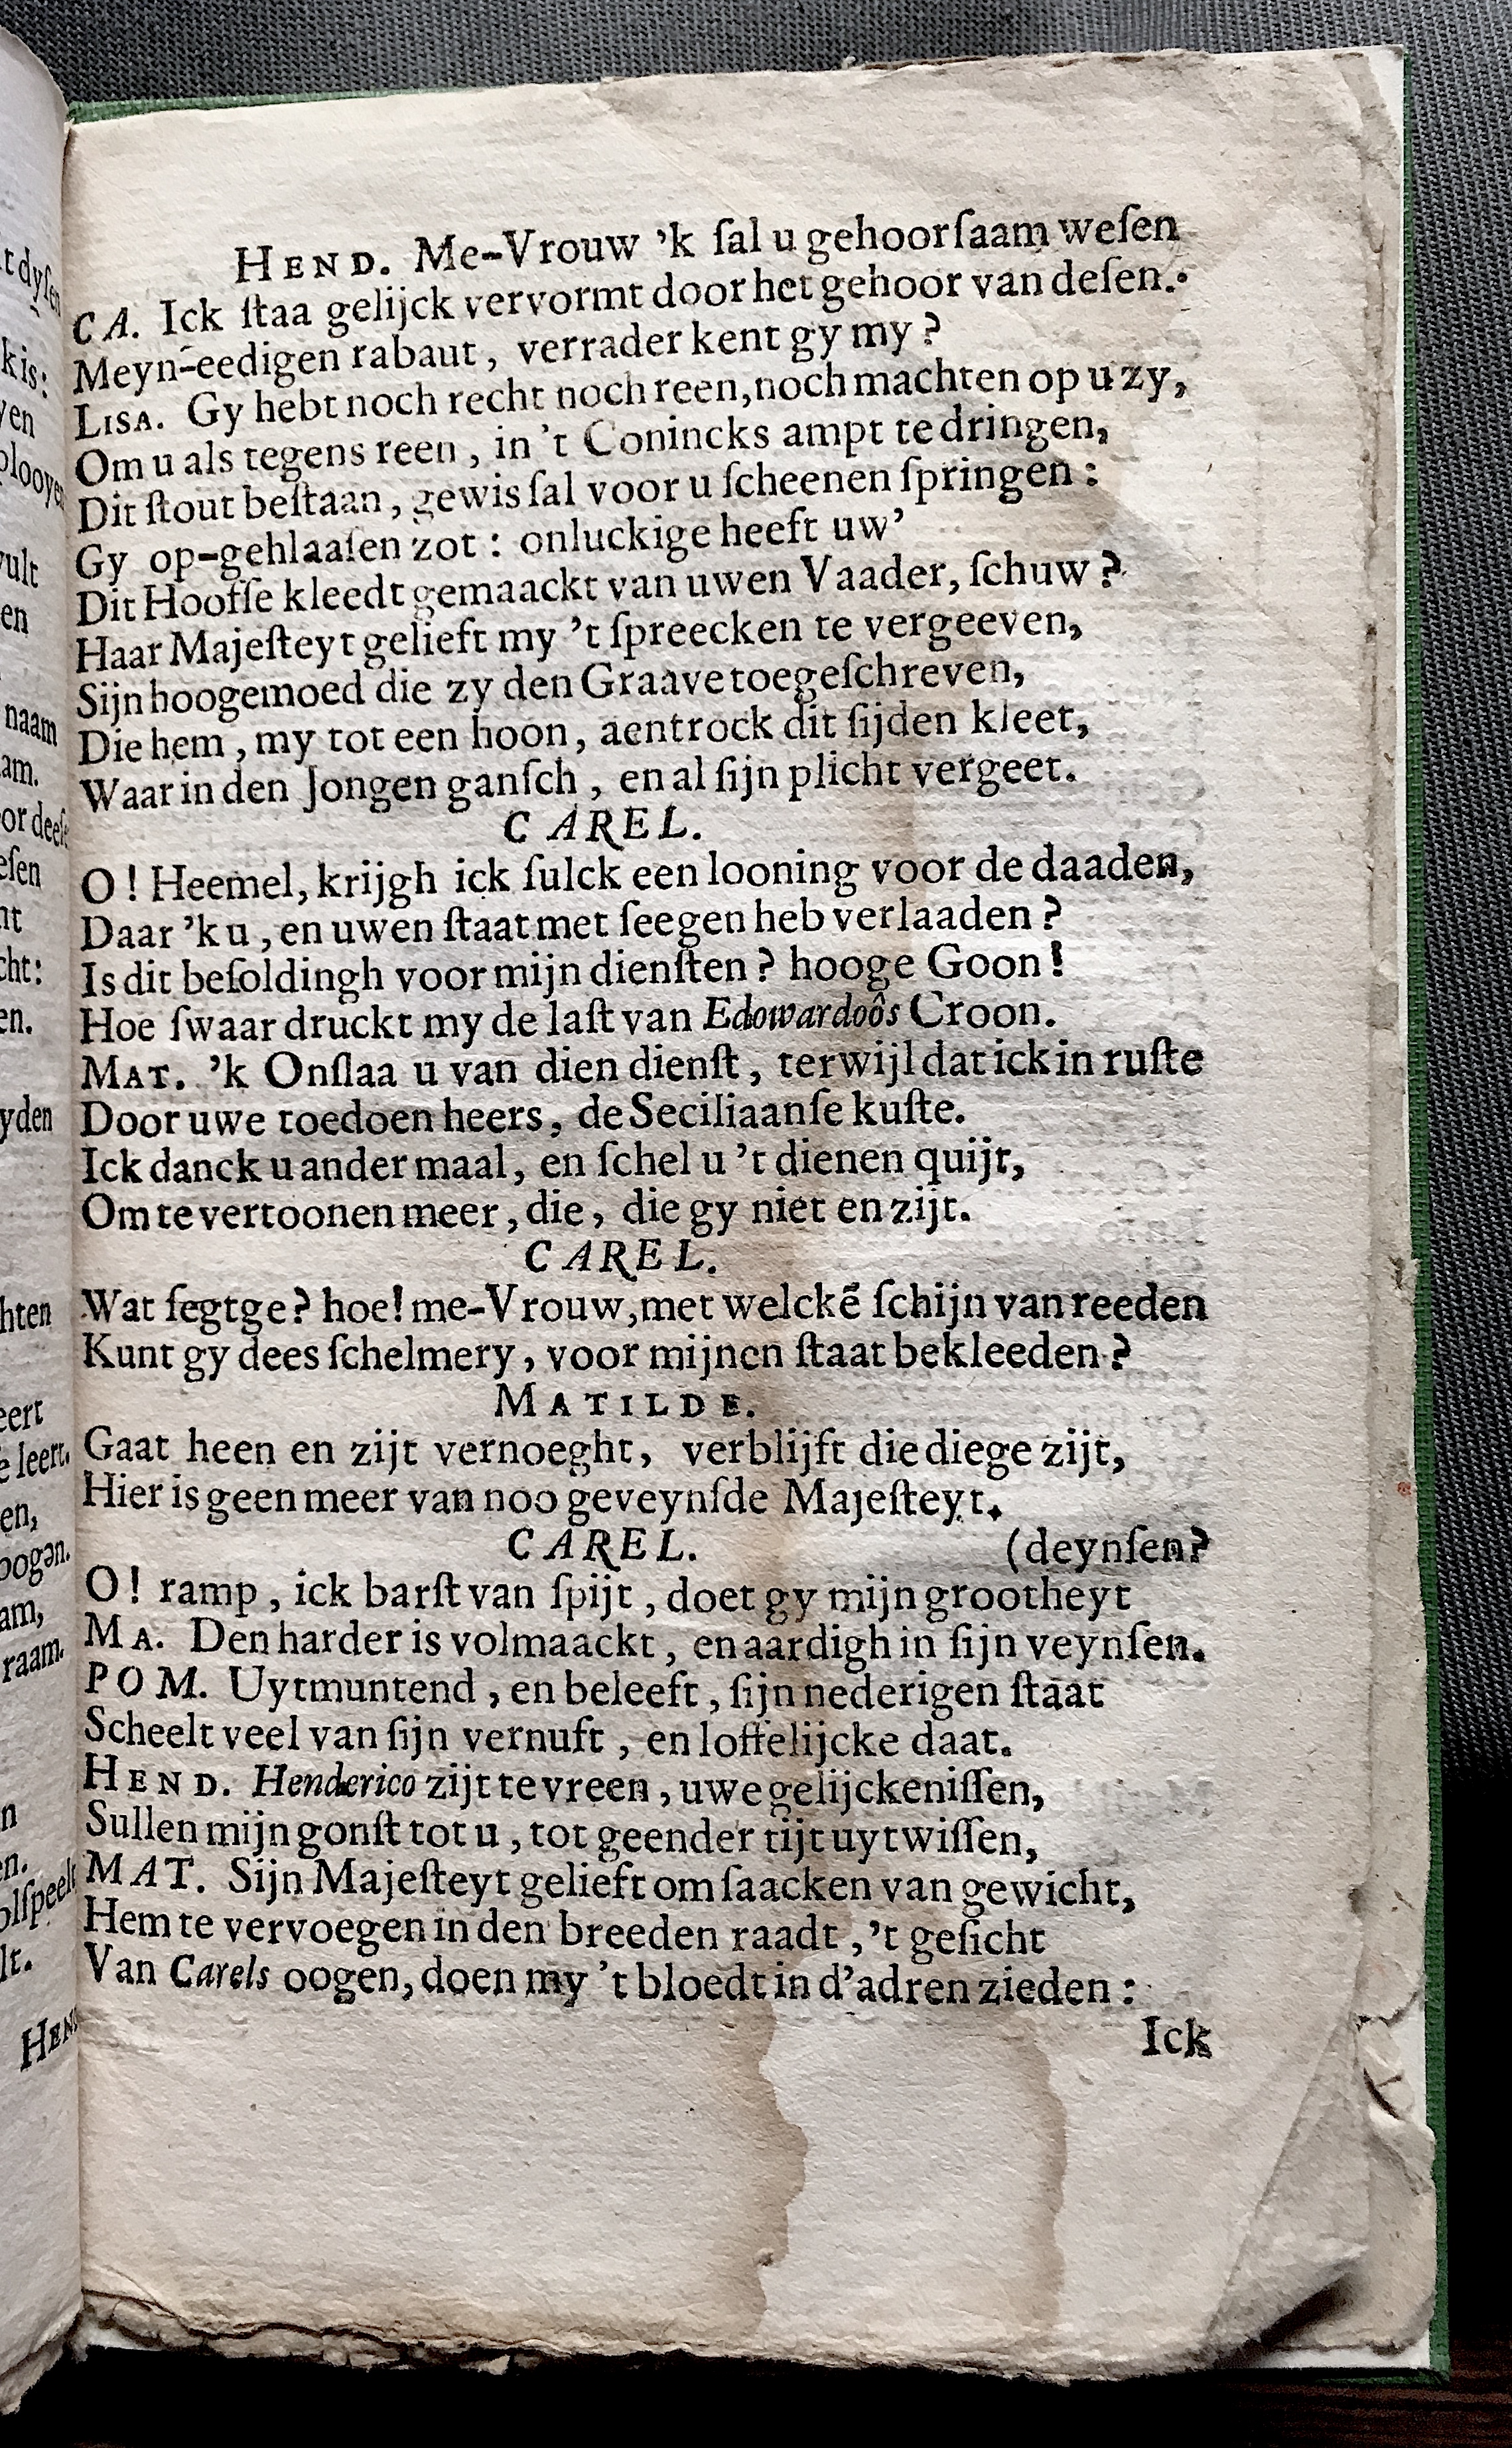 HEND. Me-Vrouw 'k ſal u gehoorſaam weſen
CA. Ick ſtaa gelijck vervormt door het gehoor van deſen.
Meyn-eedigen rabaut, verrader kent gy my?
LISA. Gy hebt noch recht noch reen, noch machten op u zy,
Om u als tegens reen, in 't Conincks ampt te dringen,
Dit ſtout beſtaan, gewis ſal voor u ſcheenen ſpringen:
Gy op-gehlaaſen zot: onluckige heeft uw'
Dit Hooffſe kleedt gemaackt van uwen Vaader, ſchuw?
Haar Majeſteyt gelieft my 't ſpreecken te vergeeven,
Sijn hoogemoed die zy den Graave toegeſchreven,
Die hem, my tot een hoon, aentrock dit ſijden kleet,
Waar in den Jongen ganſch, en al ſijn plicht vergeet.
CAREL.
O! Heemel, krijgh ick ſulck een looning voor de daaden,
Daar 'k u, en uwen ſtaat met ſeegen heb verlaaden?
Is dit beſoldingh voor mijn dienſten? hooge Goon!
Hoe ſwaar druckt my de laſt van Edowardoôs Croon.
MAT. 'k Onſlaa u van dien dienſt, terwijl dat ick in ruſte
Door uwe toedoen heers, de Seciliaanſe kuſte.
Ick danck u ander maal, en ſchel u 't dienen quijt,
Om te vertoonen meer, die, die gy niet en zijt.
CAREL.
Wat ſegtge? hoe! me-Vrouw, met welckẽ ſchijn van reeden
Kunt gy dees ſchelmery, voor mijnen ſtaat bekleeden?
MATILDE.
Gaat heen en zijt vernoeght, verblijft die diege zijt,
Hier is geen meer van noo geveynſde Majeſteyt.
CAREL. (deynſen?
O! ramp, ick barſt van ſpijt, doet gy mijn grootheyt
MA. Den harder is volmaackt, en aardigh in ſijn veynſen.
POM. Uytmuntend, en beleeft, ſijn nederigen ſtaat
Scheelt veel van ſijn vernuft, en loffelijcke daat.
HEND. Henderico zijt te vreen, uwe gelijckeniſſen,
Sullen mijn gonſt tot u, tot geender tijt uytwiſſen,
MAT. Sijn Majeſteyt gelieft om ſaacken van gewicht,
Hem te vervoegen in den breeden raadt, 't geſicht
Van Carels oogen, doen my 't bloedt in d'adren zieden:
Ick